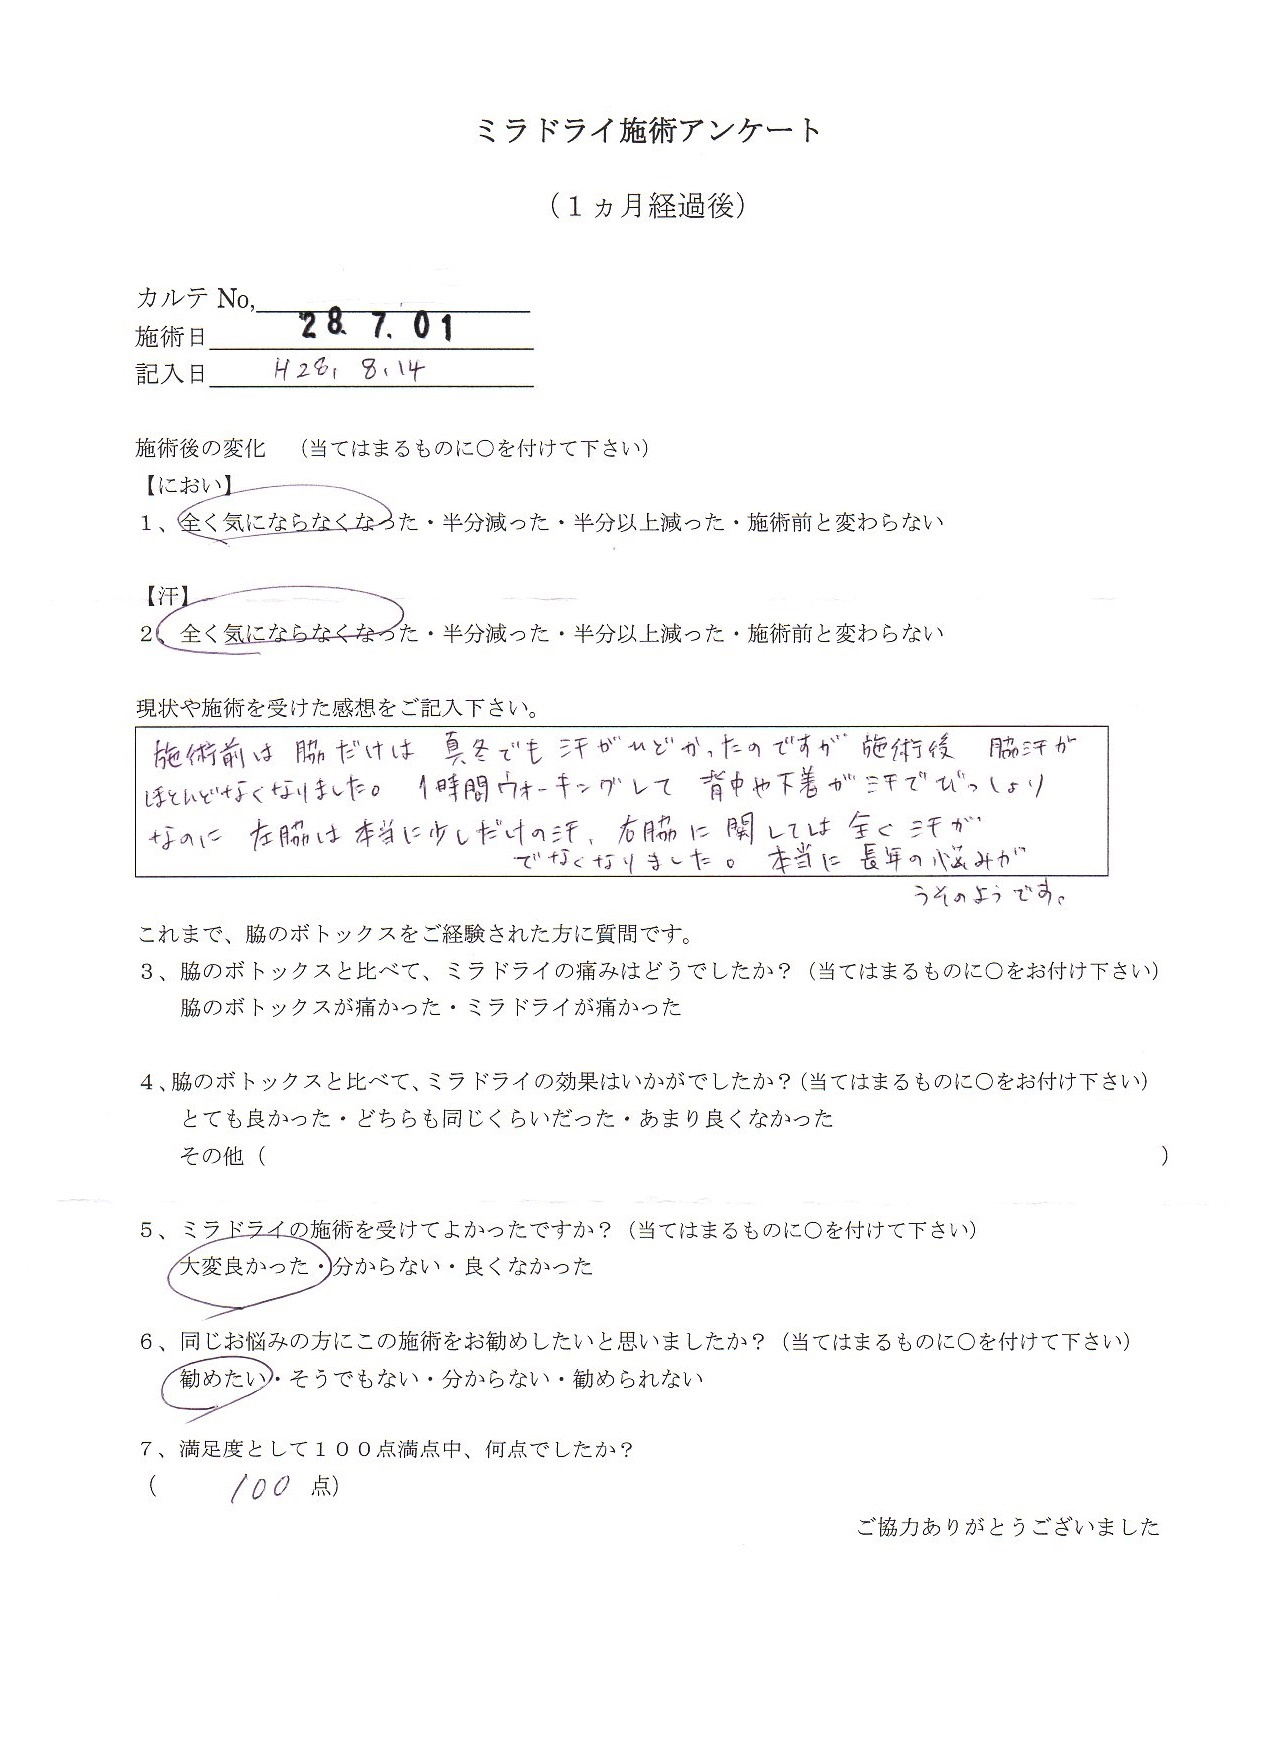 ミラドライ施術アンケート
（１ヵ月経過後）
カルテ No,
施術日 28. 7. 01
記入日 H28. 8. 14
施術後の変化　（当てはまるものに○を付けて下さい）
【におい】
１、全く気にならなくなった・半分減った・半分以上減った・施術前と変わらない
【汗】
２、全く気にならなくなった・半分減った・半分以上減った・施術前と変わらない
現状や施術を受けた感想をご記入下さい。
施術前は 脇だけは 真冬でも 汗がひどかったのですが 施術後 脇汗が
ほとんどなくなりました。 1時間ウォーキングして 背中や下着が汗でびっしょり
なのに 左脇は本当に少しだけの汗、右脇に関しては 全く汗が
でなくなりました。 本当に 長年の悩みが
うそのようです。
これまで、脇のボトックスをご経験された方に質問です。
３、脇のボトックスと比べて、ミラドライの痛みはどうでしたか？（当てはまるものに○をお付け下さい）
脇のボトックスが痛かった・ミラドライが痛かった
４、脇のボトックスと比べて、ミラドライの効果はいかがでしたか？（当てはまるものに○をお付け下さい）
とても良かった・どちらも同じくらいだった・あまり良くなかった
その他（　　　　　　　　　　）
５、ミラドライの施術を受けてよかったですか？（当てはまるものに○を付けて下さい）
大変良かった・分からない・良くなかった
６、同じお悩みの方にこの施術をお勧めしたいと思いましたか？（当てはまるものに○を付けて下さい）
勧めたい・そうでもない・分からない・勧められない
７、満足度として１００点満点中、何点でしたか？
（　100　点）
ご協力ありがとうございました